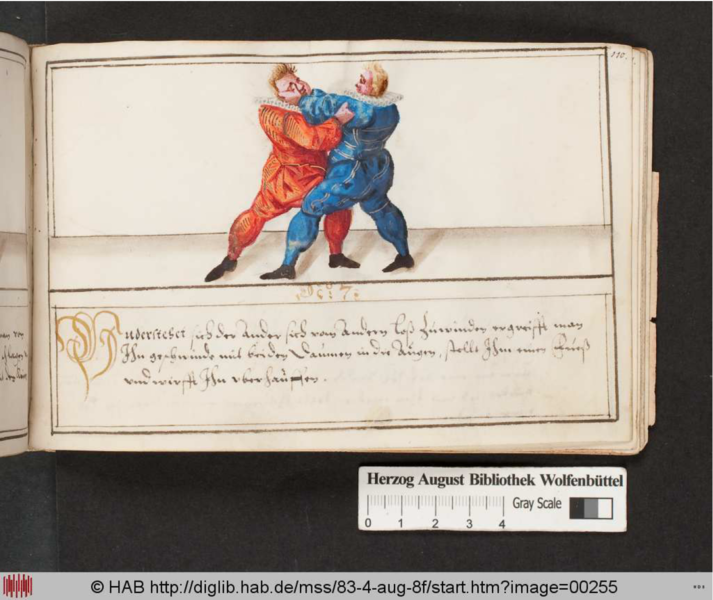 110.
N: 7:
Understehet sich der Ander sich vom Andern loß Zuwinden ergreifft man
Ihn geschwinde mit beiden Daumen in die Augen, stellt Ihm einen Fueß
und wirfft Ihn uberhauffen.
Herzog August Bibliothek Wolfenbüttel
Gray Scale
0 1 2 3 4
© HAB http://diglib.hab.de/mss/83-4-aug-8f/start.htm?image=00255